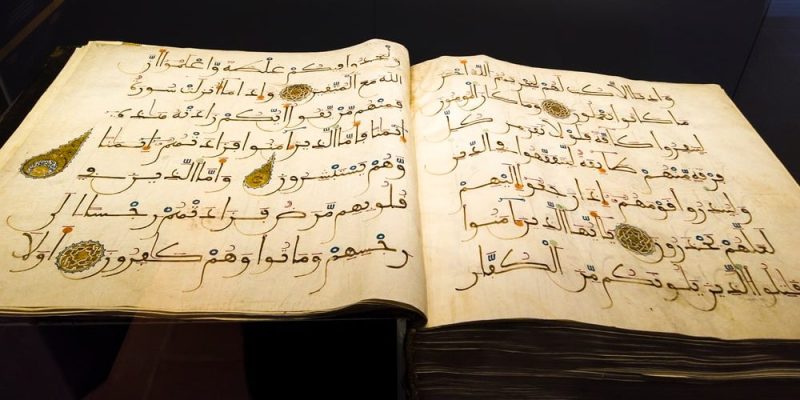 وَادِيًا اِلَّا كُتِبَ لَهُمْ لِيَجْزِيَهُمُ اللَّهُ أَحْسَنَ
مَا كَانُوا يَعْمَلُونَ وَمَا كَانَ الْمُومِنُونَ
لِيَنفِرُوا كَافَّةً فَلَوْلَا نَفَرَ مِن كُلِّ
فِرْقَةٍ مِّنْهُمْ طَائِفَةٌ لِّيَتَفَقَّهُوا فِي الدِّينِ
وَلِيُنذِرُوا قَوْمَهُمْ إِذَا رَجَعُوا إِلَيْهِمْ
لَعَلَّهُمْ يَحْذَرُونَ يَاأَيُّهَا الَّذِينَ آمَنُوا
قَاتِلُوا الَّذِينَ يَلُونَكُم مِّنَ الْكُفَّارِ
وَلْيَجِدُوا فِيكُمْ غِلْظَةً وَّاعْلَمُوا أَنَّ
اللَّهَ مَعَ الْمُتَّقِينَ وَإِذَا مَا أُنزِلَتْ سُورَةٌ
فَمِنْهُم مَّن يَّقُولُ أَيُّكُمْ زَادَتْهُ هَذِهِ
إِيمَانًا فَأَمَّا الَّذِينَ آمَنُوا فَزَادَتْهُمُ إِيمَانًا
وَّهُمْ يَسْتَبْشِرُونَ وَأَمَّا الَّذِينَ فِي
قُلُوبِهِم مَّرَضٌ فَزَادَتْهُمْ رِجْسًا إِلَى
رِجْسِهِمْ وَمَاتُوا وَهُمْ كَافِرُونَ أَوَلَا